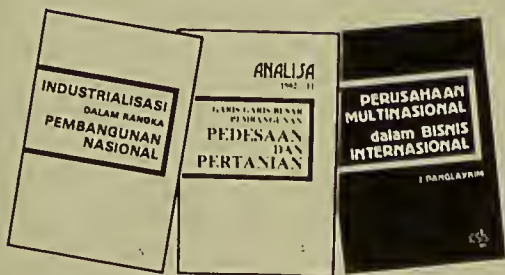 INDUSTRIALISASI
DALAM RANGKA
PEMBANGUNAN
NASIONAL
ANALISA
1982 - 11
GARIS GARIS BESAR
PEMBANGUNAN
PEDESAAN
DAN
PERTANIAN
PERUSAHAAN
MULTINASIONAL
dalam BISNIS
INTERNASIONAL
J PANGLAYKIM
CSIS